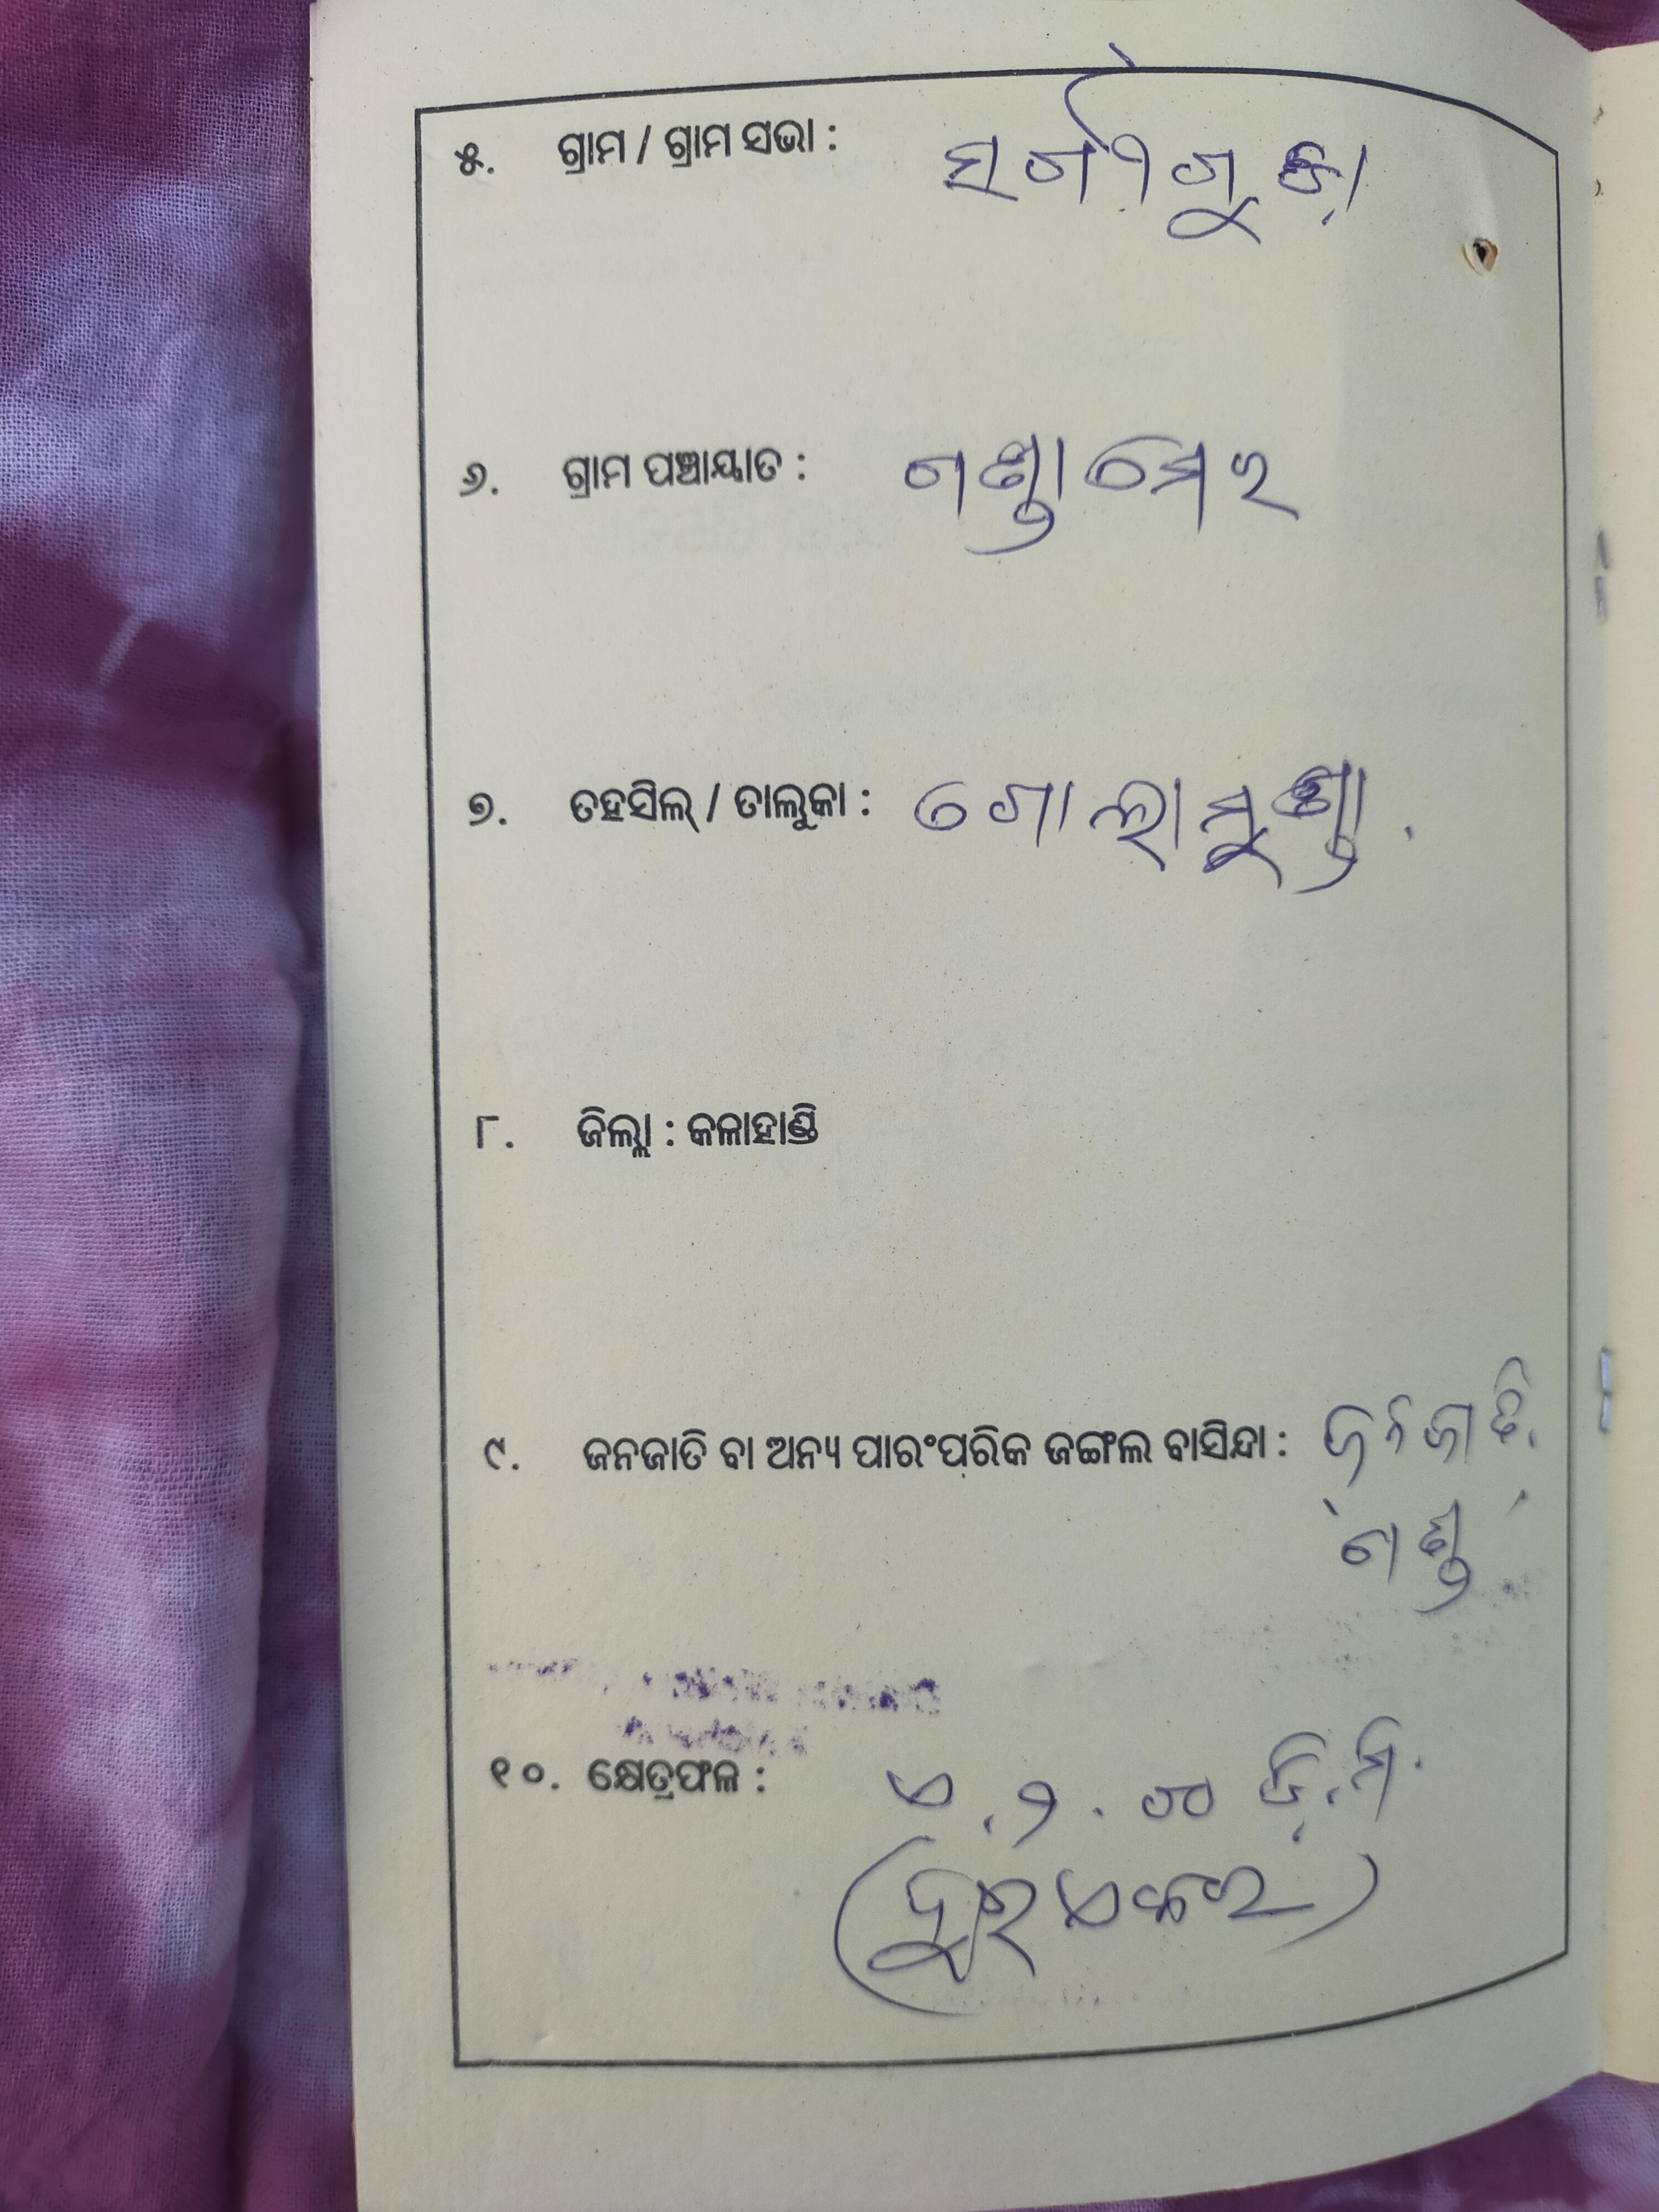 ୫. ଗ୍ରାମ / ଗ୍ରାମ ସଭା : ସର୍ଗୀଗୁଡ଼ା
୬. ଗ୍ରାମ ପଞ୍ଚାୟାତ :
୭. ତହସିଲ୍ / ତାଲୁକା : ଗୋଲାମୁଣ୍ଡା.
୮. ଜିଲ୍ଲା : କଳାହାଣ୍ଡି
୯. ଜନଜାତି ବା ଅନ୍ୟ ପାରଂପରିକ ଜଙ୍ଗଲ ବାସିନ୍ଦା : ଜନଜାତି
ଗଣ୍ଡ
୧୦. କ୍ଷେତ୍ରଫଳ : ଏ.୨.୦୦ ଡ଼ି.ମି.
(ଦୁଇ ଏକର)